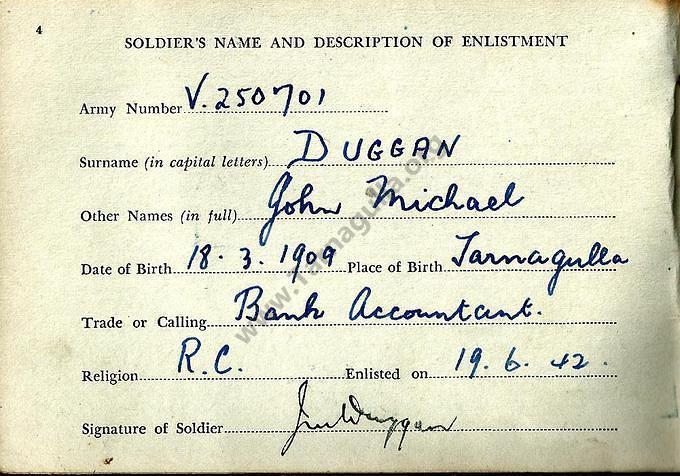 4
SOLDIER'S NAME AND DESCRIPTION OF ENLISTMENT
Army Number V.250701
Surname (in capital letters) DUGGAN
Other Names (in full) John Michael
Date of Birth 18.3.1909 Place of Birth Tarnagulla
Trade or Calling Bank Accountant.
Religion R.C. Enlisted on 19.6.42.
Signature of Soldier JMDuggan
www.Tarnagulla.org